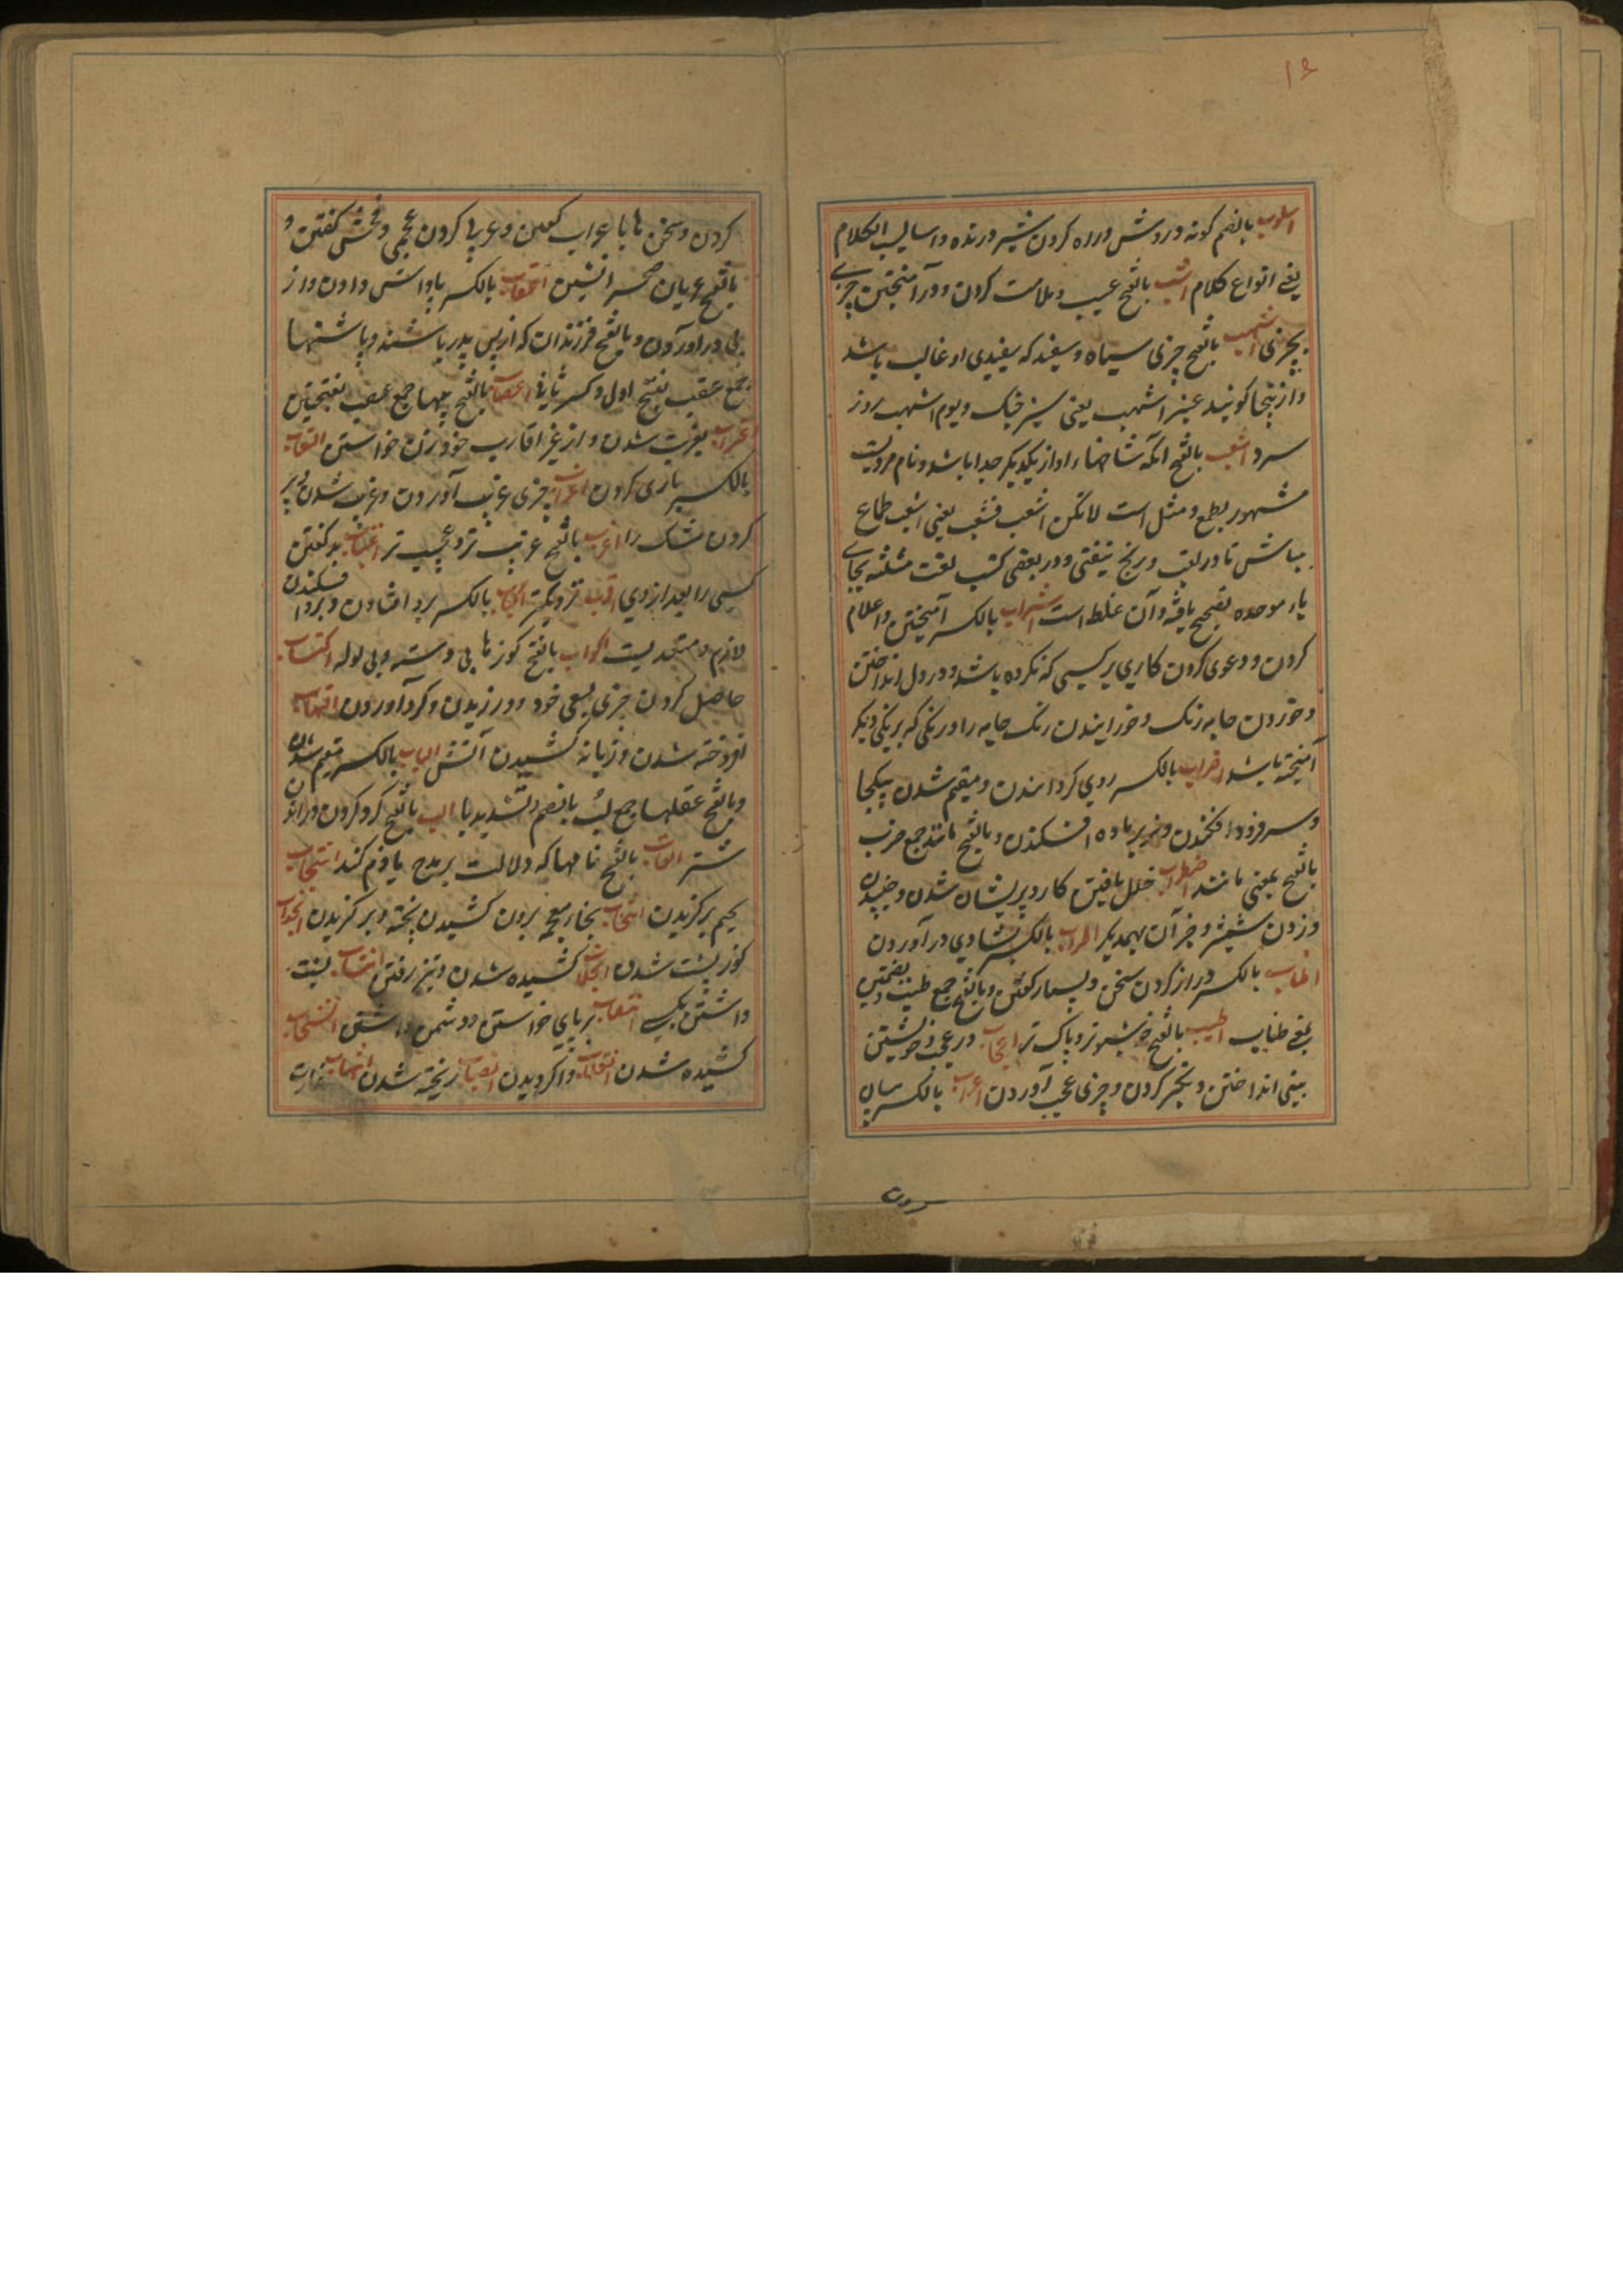 ۱۶
اسلوب بالضم کونه و روش و راه کردن شیر درنده و اسالیب الکلام
یعنی انواع کلام اشب بالفتح عیب و ملامت کردن و درآمیختن چیزی
بچیزی اشهب بالفتح چیزی سیاه و سفید که سفیدی او غالب باشد
و ازینجا کویند عنبر اشهب یعنی سبز خنک و یوم اشهب روز
سرد اشعب بالفتح انکه شاخهاء او از یکدیکر جدا باشد و نام مردیست
مشهور بطمع و مثل است لاتکن اشعب فتتعب یعنی اشعب طماع
مباش تا در تعب و رنج نیفتی و در بعضی کتب لغت مثلثه بجای
باء موحده تصحیح یافته و آن غلط است اشراب بالکسر آمیختن و اعلام
کردن و دعوی کردن کاری بر کسی که نکرده باشد و در دل انداختن
و خوردن جامه رنک و خورانیدن رنک جامه را و رنکی که برنکی دیکر
آمیخته باشد اضراب بالکسر روی کردانیدن و مقیم شدن بیکجا
و سر فرود افکندن و نر بر ماده افکندن و بالفتح مانند جمع ضرب
بالفتح بمعنی مانند اضطراب خلل یافتن کار و پریشان شدن و جنبیدن
و زدن شمشیر و جز آن بهمدیکر اطراب بالکسر بشادی درآوردن
اطناب بالکسر دراز کردن سخن و بسیار کفتن و بالفتح جمع طنب بضمتین
بمعنی طناب اطیب بالفتح خوشبوتر و پاک تر اعجاب در عجب و خویشتن
بینی انداختن و تکبر کردن و چیزی عجب آوردن اعراب بالکسر بیان
کردن و سخن را با عراب کفتن و عربی کردن عجمی و فحش کفتن و
بالفتح عربان صحرانشین اعقاب بالکسر پاداش دادن و از
پی درآوردن و بالفتح فرزندان که از پس پدر باشند و پاشنها
جمع عقب بفتح اول و کسر ثانی اعصاب بالفتح پیها جمع عصب بفتحتین
اغتراب بغربت شدن و از غیر اقارب خود زن خواستن
بالکسر بازی کردن اغراب چیزی غریب آوردن و غریب شدن و پر
کردن مشک را اغرب بالفتح غریب تر و عجیب تر اغتیاب بد کفتن
کسی را بعد از وی اقرب نزدیکتر اکباب بالکسر برو افتادن و برو افکندن
لازم و متعدیست اکواب بالفتح کوزهای بی دسته و بی لوله اکتساب
حاصل کردن چیزی بسعی خود و ورزیدن و کرد آوردن التهاب
افروخته شدن و زبانه کشیدن آتش الباب بالکسر مقیم شدن
و بالفتح عقلها جمع لب بالضم و تشدید با الب بالفتح کرد کردن و راندن
شتر القاب بالفتح نامها که دلالت بر مدح یا ذم کند انتجاب
بجیم برکزیدن انتخاب بخاء معجمه برون کشیدن پخته و برکزیدن
کوز پشت شدن انجلاب کشیده شدن و تیز رفتن انتساب نسبت
داشتن بیک انتصاب بر پای خواستن و دشمن داشتن انسحاب
کشیده شدن انقلاب واکردیدن انصباب ریخته شدن انتهاب غارت
کردن